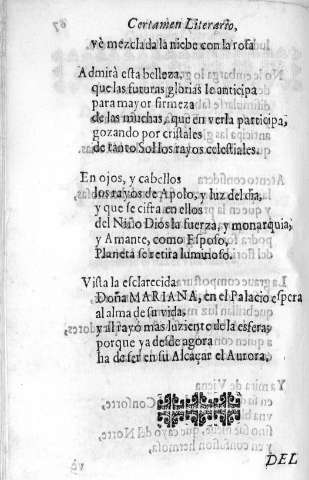 Certamen Literario,
vè mezclada la niebe con la rosa
Admirà esta belleza,
que las futuras glorias le anticipa
para mayor firmeza
de las muchas, que en verla participa,
gozando por cristales
de tanto Sol los rayos celestiales.
En ojos, y cabellos
los rayos de Apolo, y luz del dia,
y que se cifra en ellos
del Niño Dios la fuerza, y monarquia,
y Amante, como Esposo,
Planeta se retira luminoso.
Vista la esclarecida
Doña MARIANA, en el Palacio espera
al alma de su vida,
y al rayo mas luziente de la esfera,
porque ya desde agora
ha de ser en su Alcaçar el Aurora,
DEL